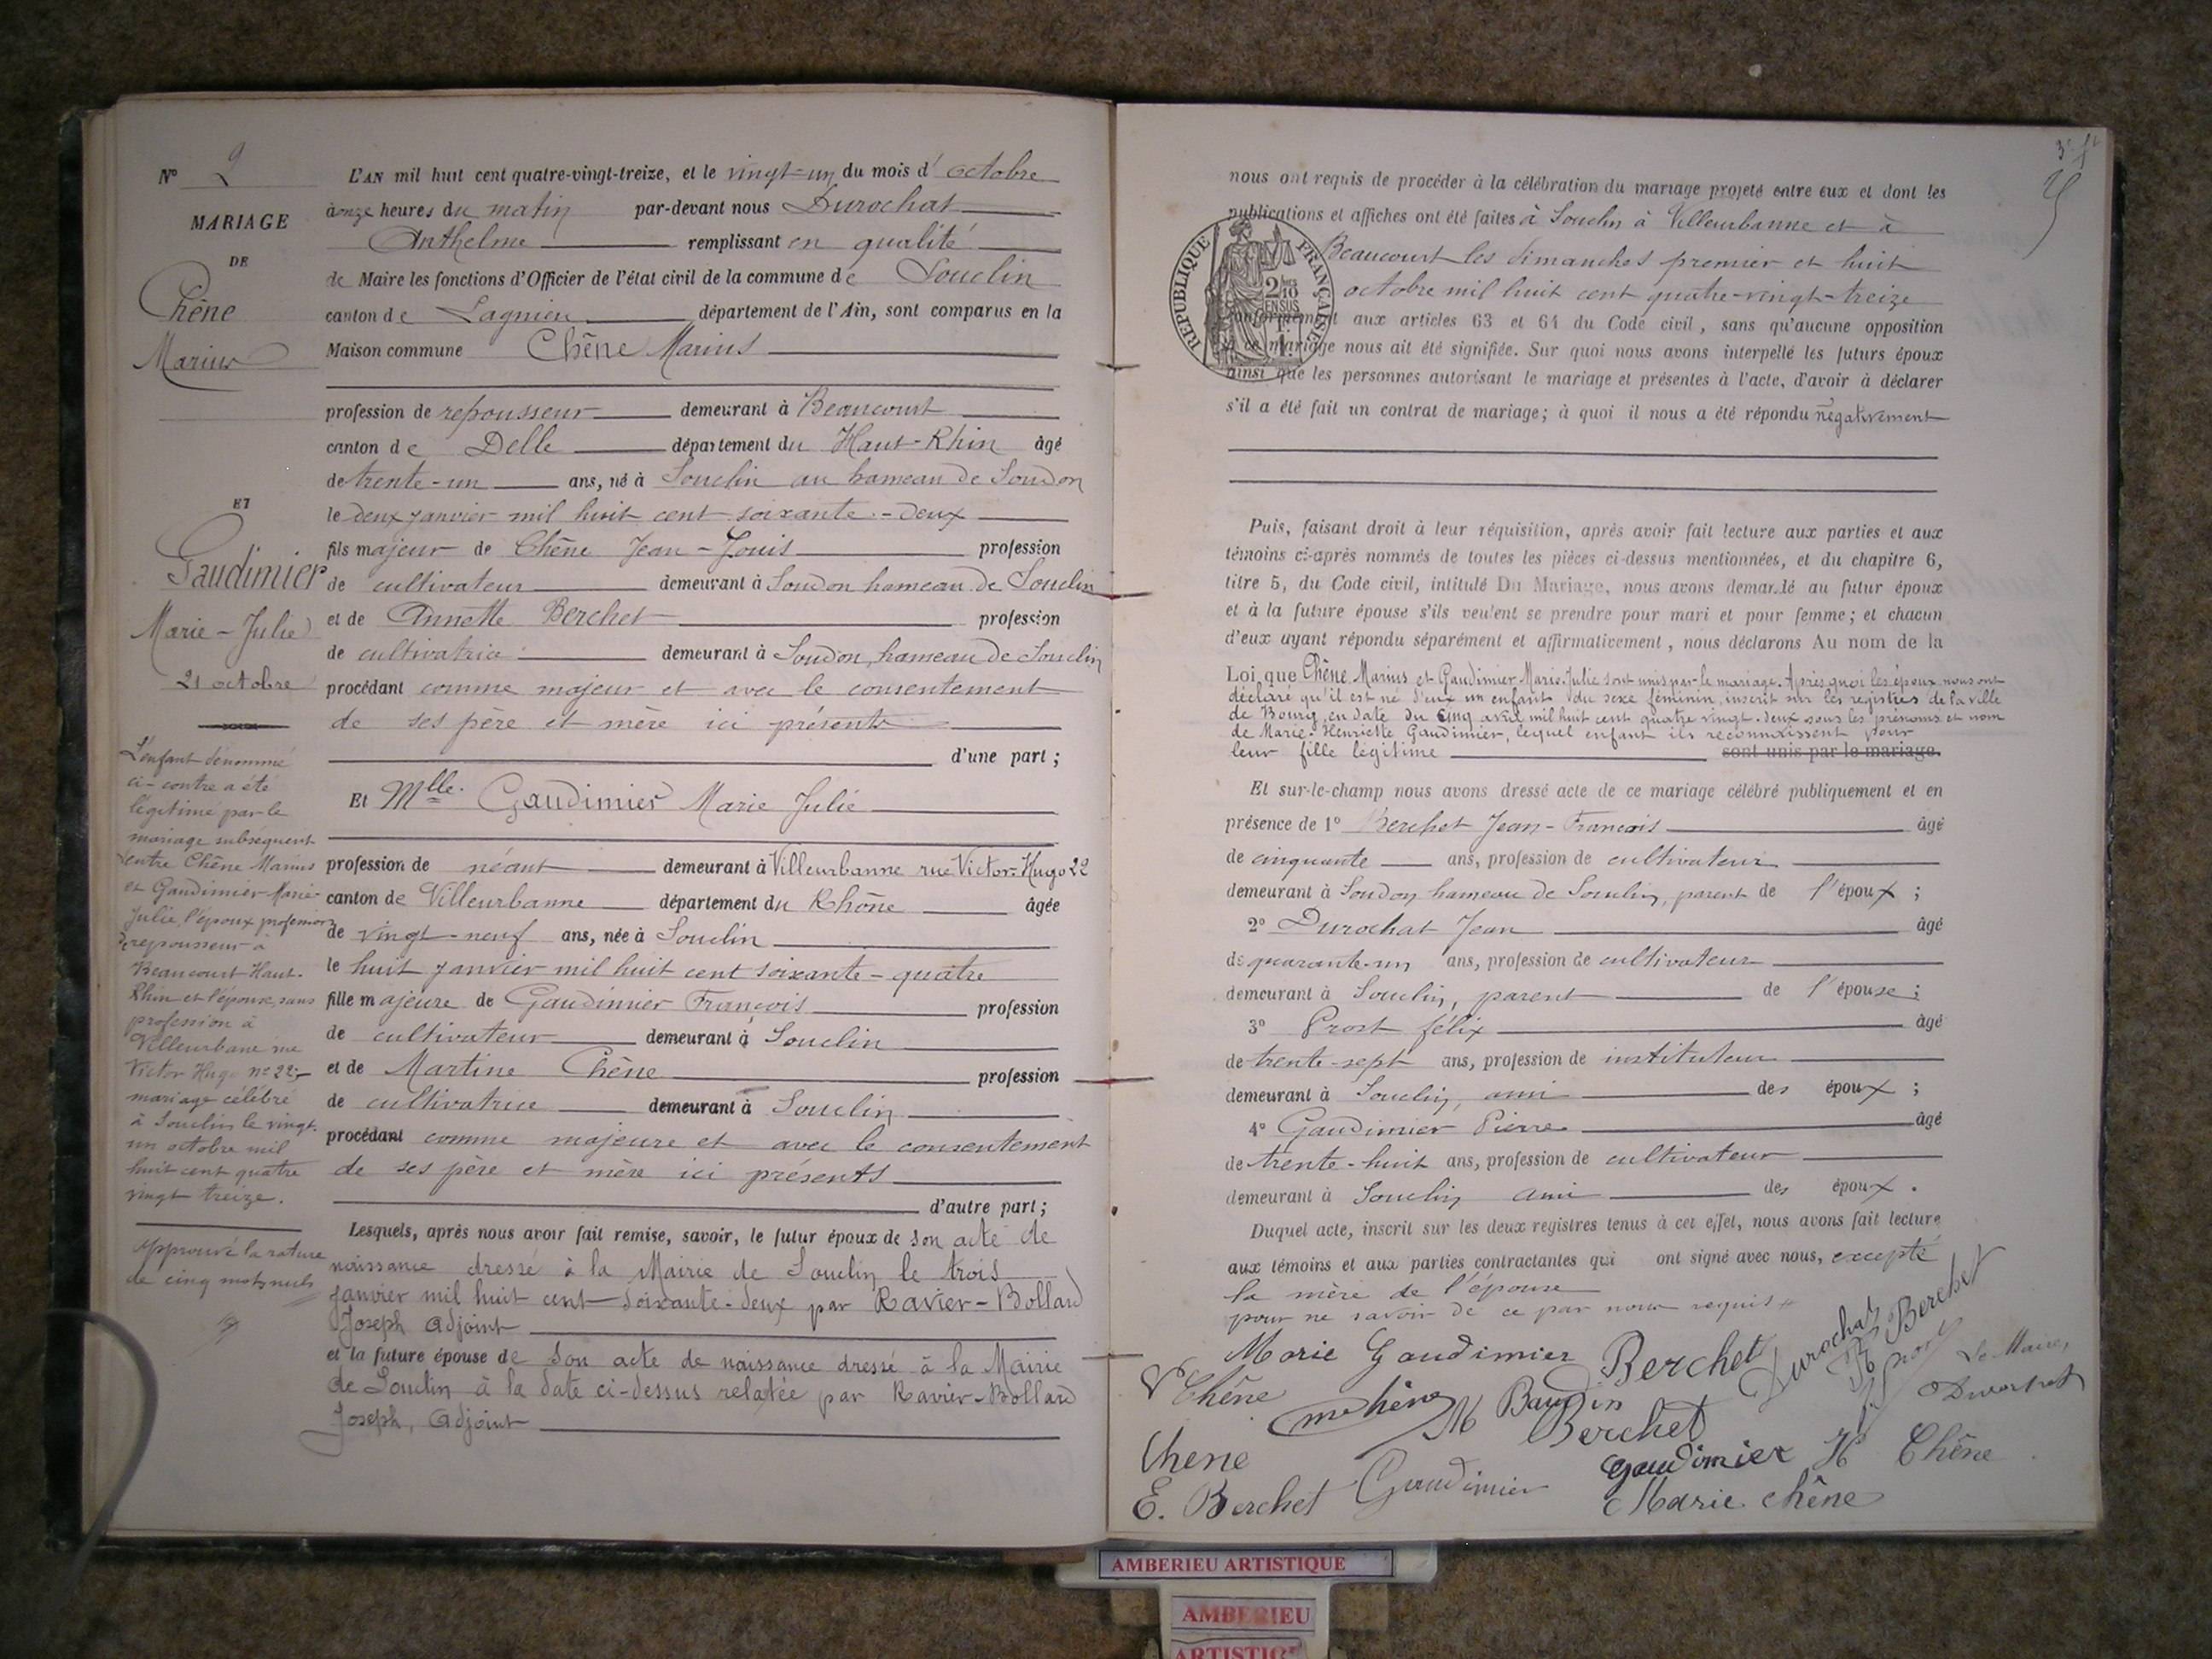 Nº 2
MARIAGE
DE
Chêne
Marius
ET
Gaudimier
Marie-Julie
21 octobre
L'enfant dénommé
ci-contre a été
légitimé par le
mariage subséquent
entre Chêne Marius
et Gaudimier Marie-
Julie, l'époux profession
de repousseur à
Beaucourt Haut-
Rhin et l'épouse, sans
profession à
Villeurbane rue
Victor Hugo nº 22,
mariage célébré
à Souclin le vingt-
un octobre mil
huit cent quatre
vingt treize.
Approuvé la rature
de cinq mots nuls
L'AN mil huit cent quatre-vingt-treize, et le vingt-un du mois d'octobre
à onze heures du matin par-devant nous Durochat
Anthelme remplissant en qualité
de Maire les fonctions d'Officier de l'état civil de la commune de Souclin
canton de Lagnieu département de l'Ain, sont comparus en la
Maison commune Chêne Marius
profession de repousseur demeurant à Beaucourt
canton de Delle département du Haut-Rhin âgé
de trente-un ans, né à Souclin au hameau de Soudon
le deux janvier mil huit cent soixante-deux
fils majeur de Chêne Jean-Louis profession
de cultivateur demeurant à Soudon hameau de Souclin
et de Annette Berchet profession
de cultivatrice demeurant à Soudon, hameau de Souclin
procédant comme majeur et avec le consentement
de ses père et mère ici présents
d'une part;
Et Mlle. Gaudimier Marie Julie
profession de néant demeurant à Villeurbanne rue Victor-Hugo 22
canton de Villeurbanne département du Rhône âgée
de vingt-neuf ans, née à Souclin
le huit janvier mil huit cent soixante-quatre
fille majeure de Gaudimier François profession
de cultivateur demeurant à Souclin
et de Martine Chêne profession
de cultivatrice demeurant à Souclin
procédant comme majeure et avec le consentement
de ses père et mère ici présents
d'autre part;
Lesquels, après nous avoir fait remise, savoir, le futur époux de son acte de
naissance dressé à la Mairie de Souclin le trois
janvier mil huit cent soixante-deux par Ravier-Bollard
Joseph Adjoint
et la future épouse de son acte de naissance dressé à la Mairie
de Souclin à la date ci-dessus relatée par Ravier-Bollard
Joseph, Adjoint
nous ont requis de procéder à la célébration du mariage projeté entre eux et dont les
publications et affiches ont été faites à Souclin à Villeurbanne et à
Beaucourt les dimanches premier et huit
octobre mil huit cent quatre-vingt-treize
conformément aux articles 63 et 64 du Code civil, sans qu'aucune opposition
à ce mariage nous ait été signifiée. Sur quoi nous avons interpellé les futurs époux
ainsi que les personnes autorisant le mariage et présentes à l'acte, d'avoir à déclarer
s'il a été fait un contrat de mariage; à quoi il nous a été répondu négativement
RÉPUBLIQUE FRANÇAISE
2/10 EN SUS
Puis, faisant droit à leur réquisition, après avoir fait lecture aux parties et aux
témoins ci-après nommés de toutes les pièces ci-dessus mentionnées, et du chapitre 6,
titre 5, du Code civil, intitulé Du Mariage, nous avons demandé au futur époux
et à la future épouse s'ils veulent se prendre pour mari et pour femme; et chacun
d'eux ayant répondu séparément et affirmativement, nous déclarons Au nom de la
Loi que Chêne Marius et Gaudimier Marie-Julie sont unis par le mariage. Après quoi les époux nous ont
déclaré qu'il est né d'eux un enfant du sexe féminin, inscrit sur les registres de la ville
de Bourg, en date du cinq avril mil huit cent quatre vingt-deux sous les prénoms et nom
de Marie-Henriette Gaudimier, lequel enfant ils reconnaissent pour
leur fille légitime sont unis par le mariage.
Et sur-le-champ nous avons dressé acte de ce mariage célébré publiquement et en
présence de 1º Berchet Jean-François âgé
de cinquante ans, profession de cultivateur
demeurant à Soudon hameau de Souclin, parent de l'époux;
2º Durochat Jean âgé
de quarante-un ans, profession de cultivateur
demeurant à Souclin, parent de l'épouse;
3º Prost félix âgé
de trente-sept ans, profession de instituteur
demeurant à Souclin, ami des époux;
4º Gaudimier Pierre âgé
de trente-huit ans, profession de cultivateur
demeurant à Souclin ami des époux.
Duquel acte, inscrit sur les deux registres tenus à cet effet, nous avons fait lecture
aux témoins et aux parties contractantes qui ont signé avec nous, excepté
la mère de l'épouse
pour ne savoir de ce par nous requis
Marie Gaudimier Berchet Durochat Berchet
Le Maire,
Durochat
Chêne M Baudin
Berchet
Chene Gaudimier H Chêne
E. Berchet Gaudimier Marie chêne
AMBERIEU ARTISTIQUE
AMBERIEU
ARTISTIQUE